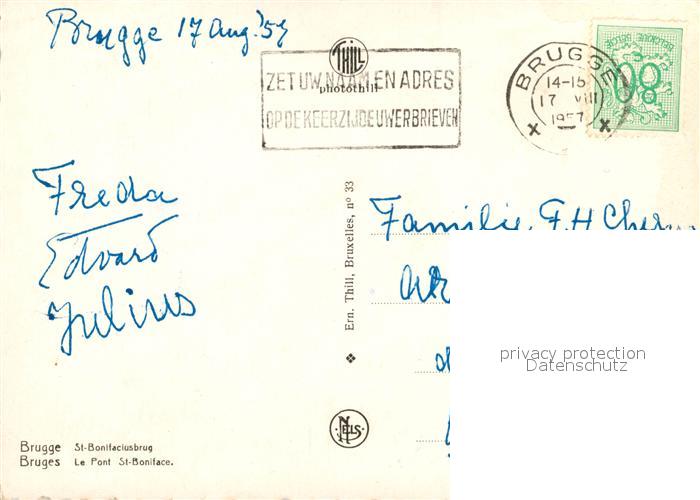 Brugge 17 Aug. '57
THILL
photothill
ZET UW NAAM EN ADRES
OP DE KEERZIJDE UWER BRIEVEN
BRUGGE
14-15
17 VIII
1957
X X
BELGIQUE BELGIE
80
Freda
Edvard
Julius
Ern. Thill, Bruxelles, nº 33
Familie F.H
privacy protection
Datenschutz
NELS
Brugge St-Bonifaciusbrug
Bruges Le Pont St-Boniface.